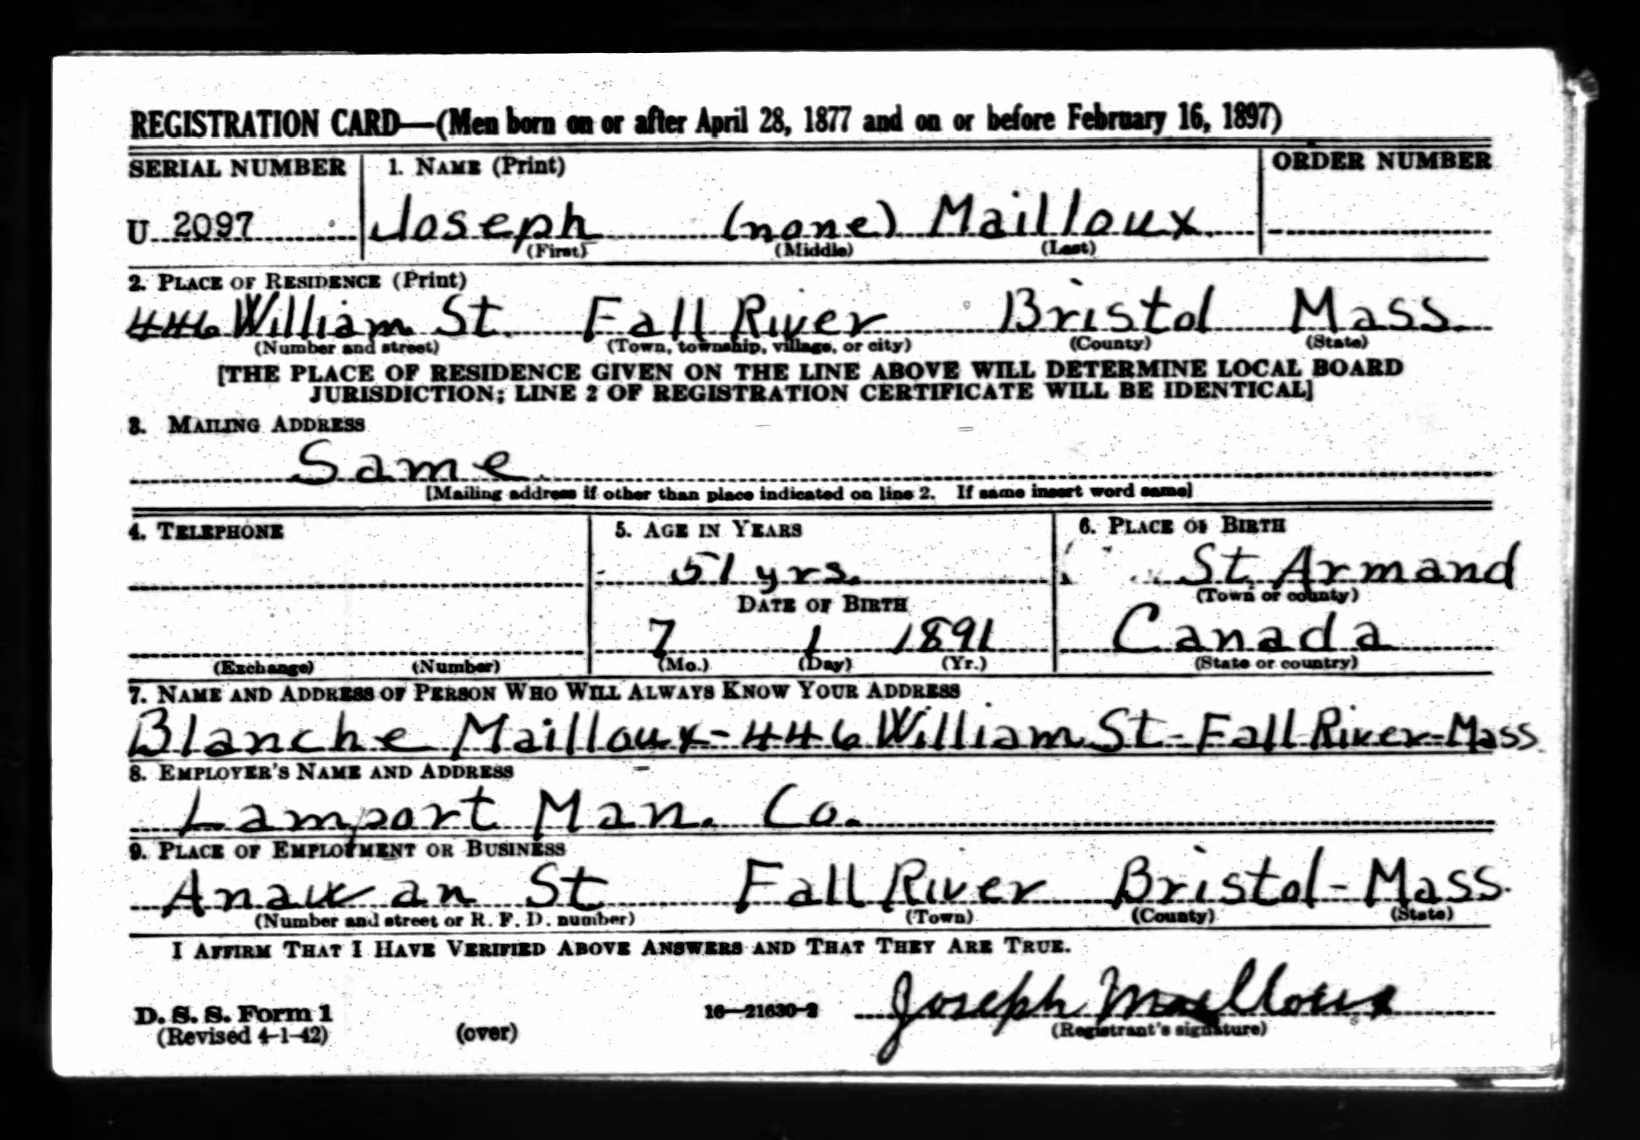 REGISTRATION CARD—(Men born on or after April 28, 1877 and on or before February 16, 1897)
SERIAL NUMBER 1. NAME (Print) ORDER NUMBER
U 2097 Joseph (none) Mailloux
(First) (Middle) (Last)
2. PLACE OF RESIDENCE (Print)
446 William St. Fall River Bristol Mass.
(Number and street) (Town, township, village, or city) (County) (State)
[THE PLACE OF RESIDENCE GIVEN ON THE LINE ABOVE WILL DETERMINE LOCAL BOARD
JURISDICTION; LINE 2 OF REGISTRATION CERTIFICATE WILL BE IDENTICAL]
3. MAILING ADDRESS
Same
[Mailing address if other than place indicated on line 2. If same insert word same]
4. TELEPHONE 5. AGE IN YEARS 6. PLACE OF BIRTH
51 yrs. St. Armand
DATE OF BIRTH (Town or county)
7 1 1891 Canada
(Exchange) (Number) (Mo.) (Day) (Yr.) (State or country)
7. NAME AND ADDRESS OF PERSON WHO WILL ALWAYS KNOW YOUR ADDRESS
Blanche Mailloux-446 William St-Fall River-Mass
8. EMPLOYER'S NAME AND ADDRESS
Lamport Man. Co.
9. PLACE OF EMPLOYMENT OR BUSINESS
Anawan St Fall River Bristol-Mass.
(Number and street or R. F. D. number) (Town) (County) (State)
I AFFIRM THAT I HAVE VERIFIED ABOVE ANSWERS AND THAT THEY ARE TRUE.
D. S. S. Form 1 16—21630-2 Joseph Mailloux
(Revised 4-1-42) (over) (Registrant's signature)